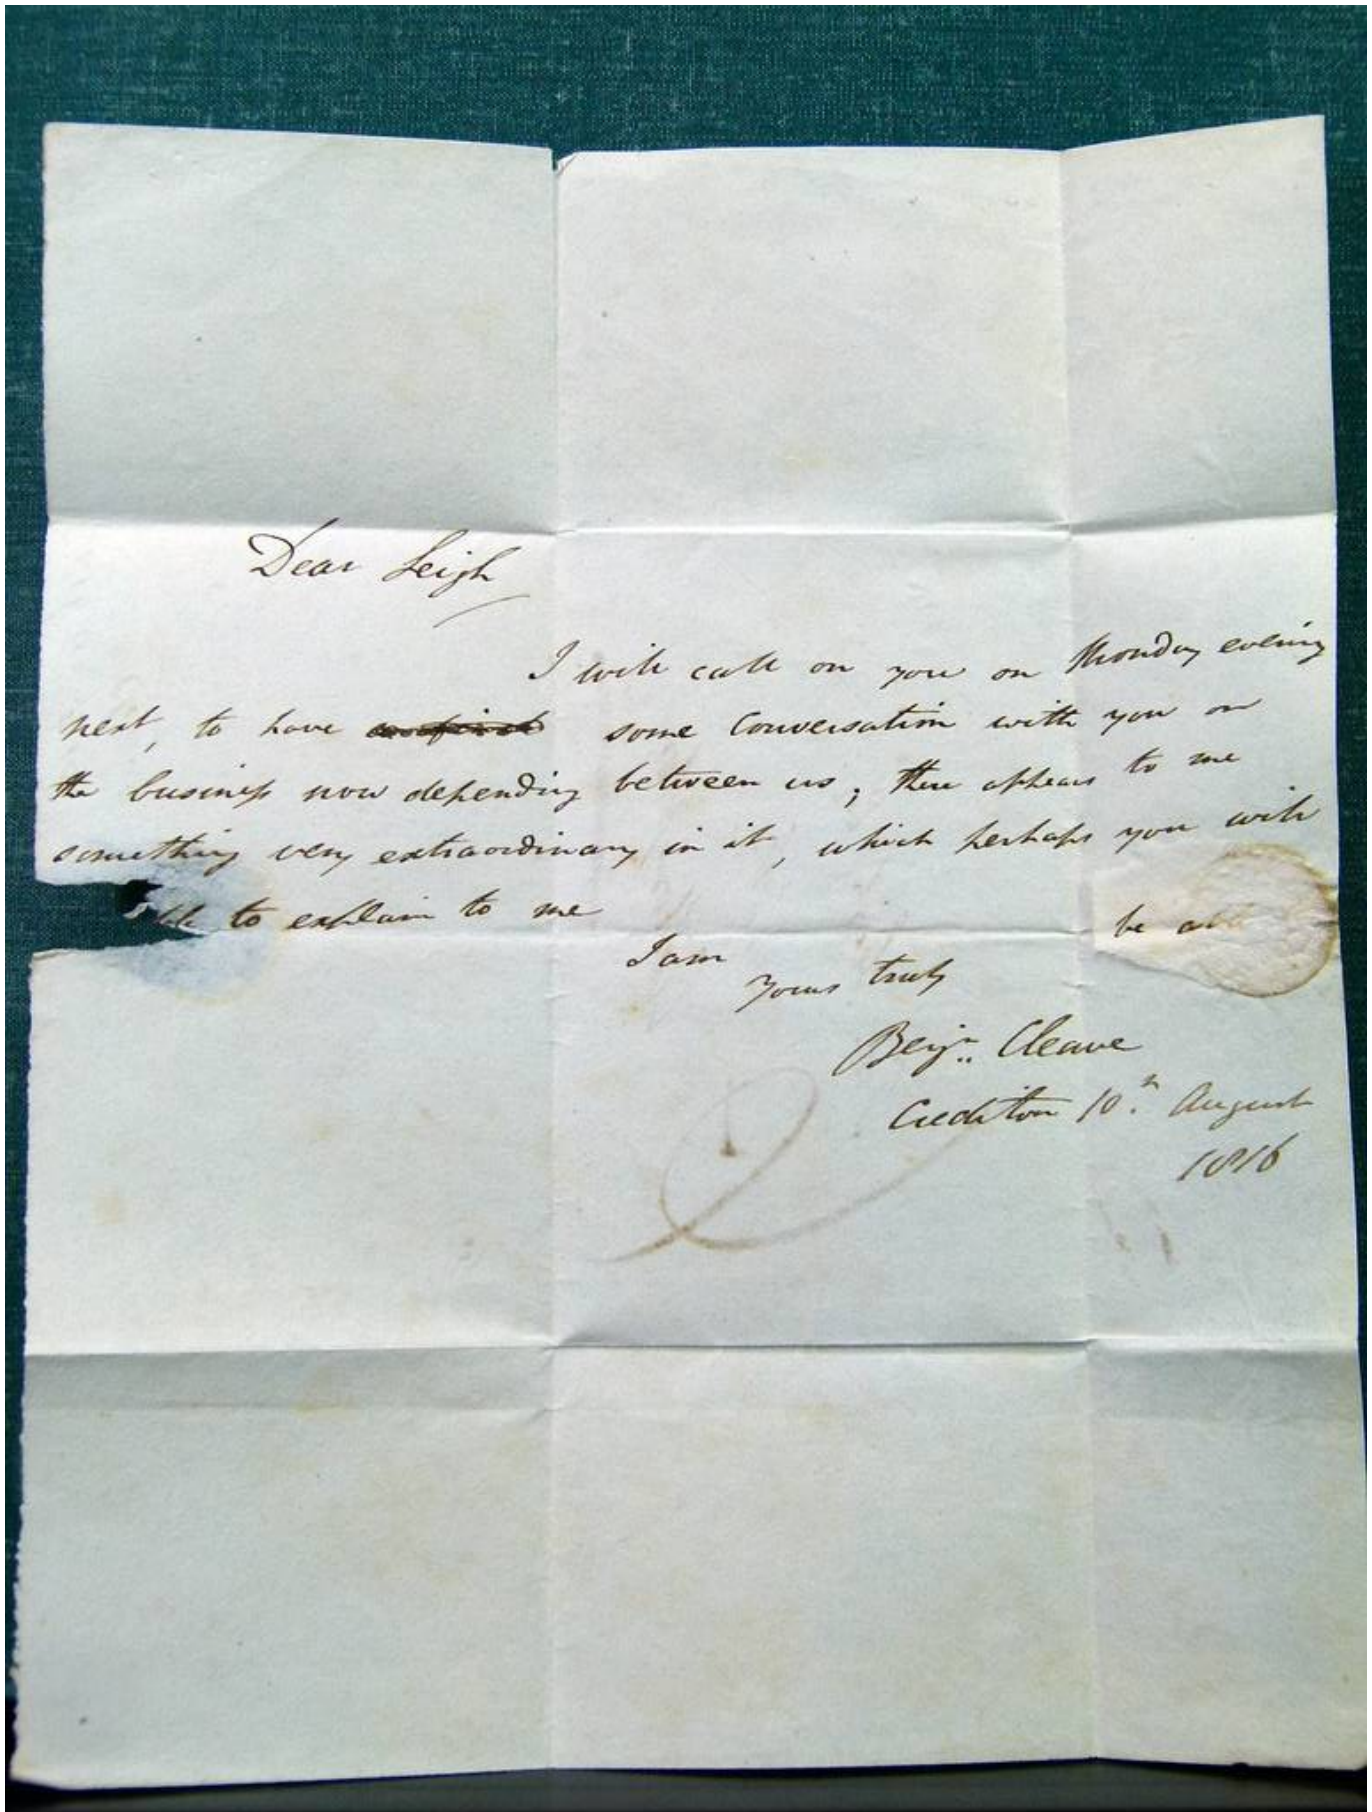 Dear Leigh
I will call on you on Monday evening
next, to have some Conversation with you on
the business now depending between us, there appears to me
something very extraordinary in it, which perhaps you will
to explain to me be
I am
Yours truly
Benjn. Cleave
Crediton 10th August
1816